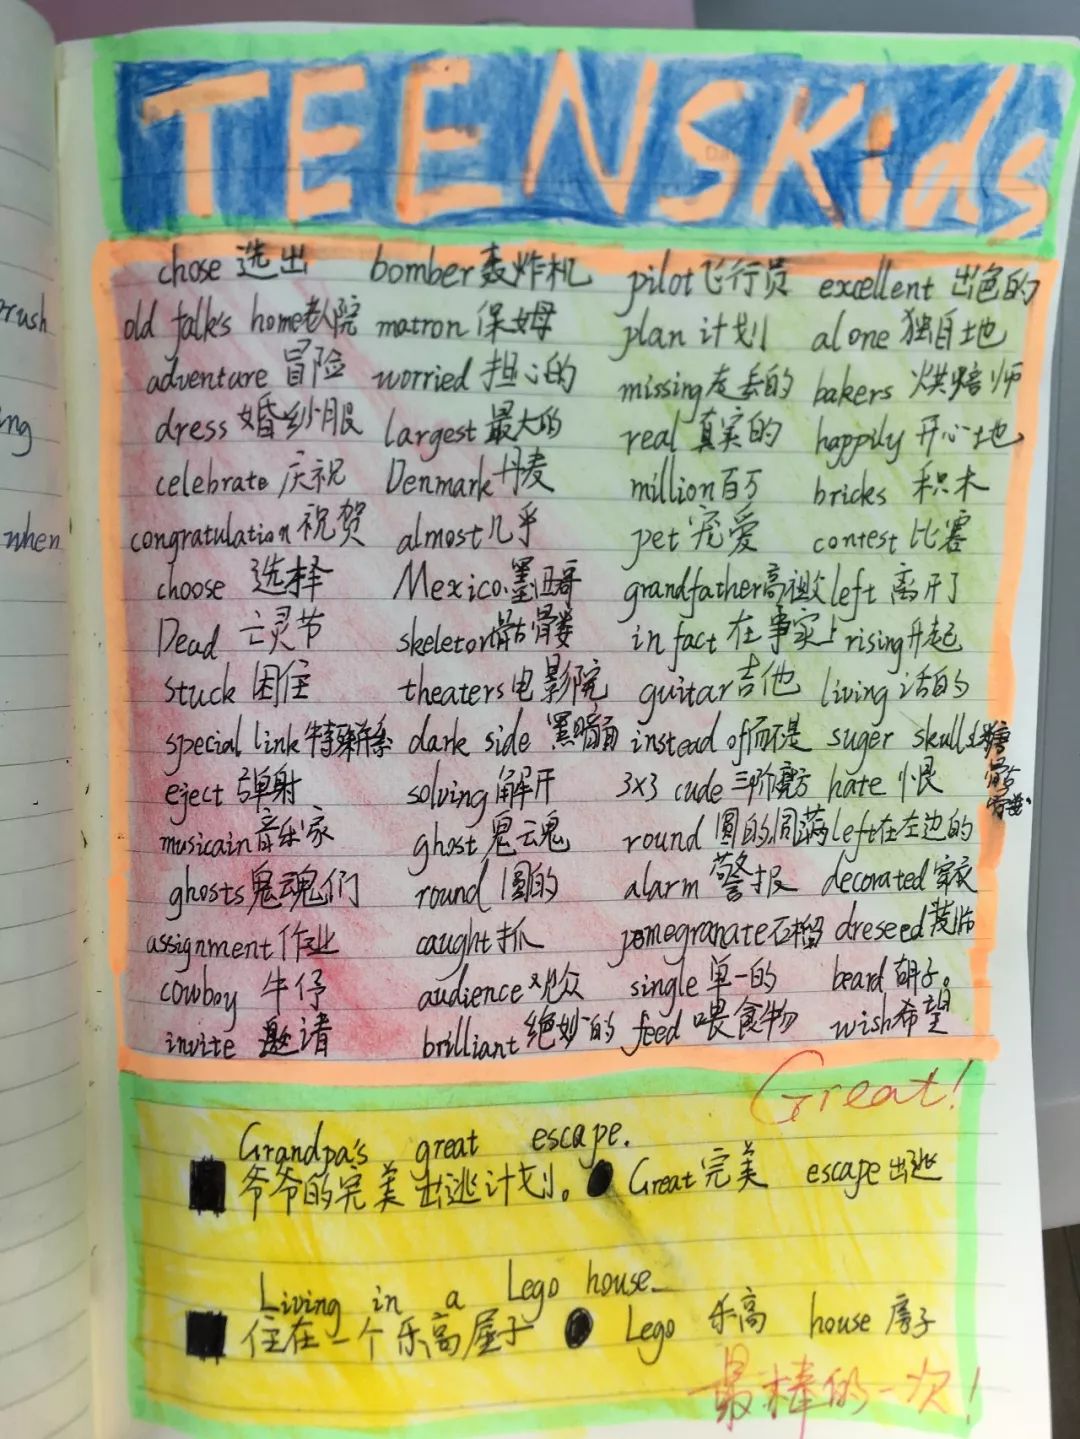 TEENSKids
chose 选出 bomber 轰炸机 pilot 飞行员 excellent 出色的
old falk's home 老人院 matron 保姆 plan 计划 alone 独自地
adventure 冒险 worried 担心的 missing 走丢的 bakers 烘焙师
dress 婚纱服 largest 最大的 real 真实的 happily 开心地
celebrate 庆祝 Denmark 丹麦 million 百万 bricks 积木
congratulation 祝贺 almost 几乎 pet 宠爱 contest 比赛
choose 选择 Mexico 墨西哥 grandfather 高祖父 left 离开了
Dead 亡灵节 skeleton 骷髅 in fact 在事实上 rising 升起
stuck 困住 theaters 电影院 guitar 吉他 living 活的
special link 特殊联系 dark side 黑暗面 instead of 而不是 suger skulls 糖骷髅
eject 弹射 solving 解开 3x3 cude 三阶魔方 hate 恨
musicain 音乐家 ghost 鬼魂 round 圆的圆满 left 在左边的
ghosts 鬼魂们 round 圆的 alarm 警报 decorated
assignment 作业 caught 抓 pomegranate 石榴 dreseed
cowboy 牛仔 audience 观众 single 单一的 beard 胡子。
invite 邀请 brilliant 绝妙的 feed 喂食物 wish 希望
Great!
Grandpa's great escape.
爷爷的完美出逃计划。 Great 完美 escape 出逃
Living in a Lego house
住在一个乐高屋子 Lego 乐高 house 房子
最棒的一次!
brush
ng
when